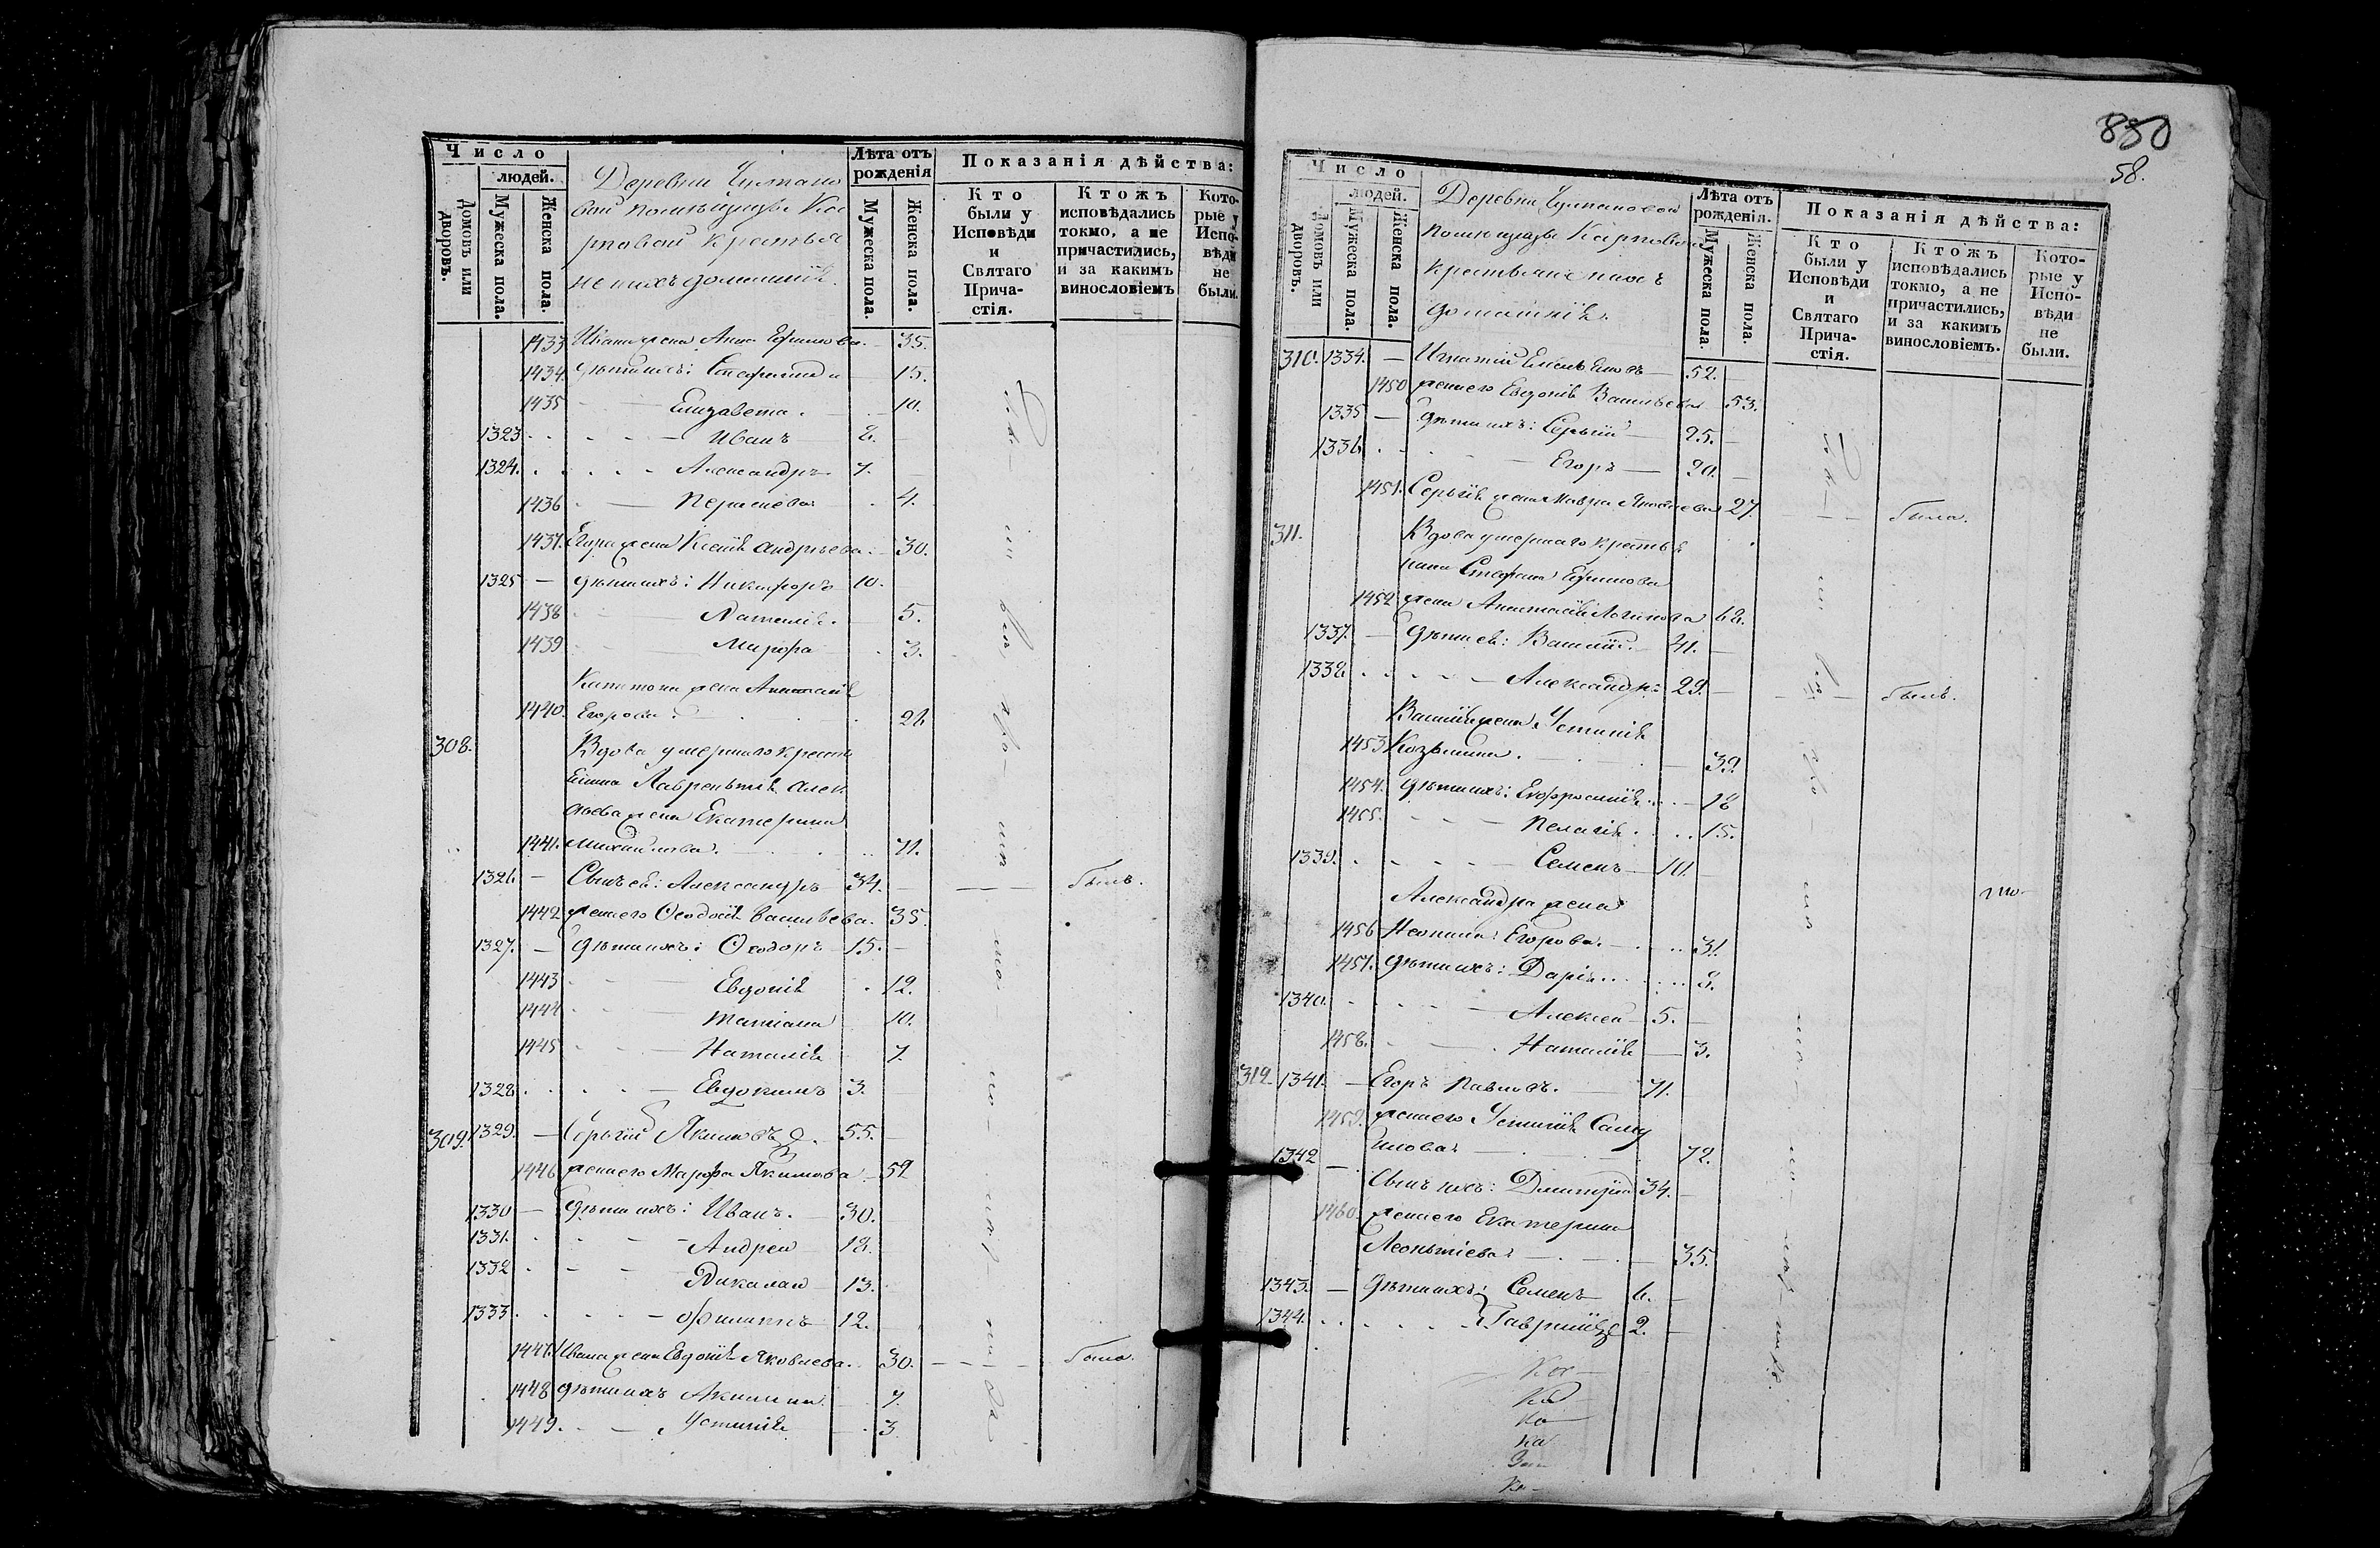 Число
людей.
Домовъ или дворовъ.
Мужеска пола.
Женска пола.
Деревни
вой помѣщицы Ка
рповой крестья
не и ихъ домашніе.
Лѣта отъ рожденія
Мужеска пола.
Женска пола.
Показанія дѣйства:
Кто были у Исповѣди и Святаго Прича-стія.
Ктожъ исповѣдались токмо, а не причастились, и за какимъ винословіемъ
Кото-рые у Испо-вѣди не были.
1433 Ивана жена Анна Ефимова. 35.
1434. дѣти ихъ: Стефанида 15.
1435 Елизавета. 10.
1323 Иванъ 8.
1324. Александръ 7.
1436 4.
1437. Егора жена Ксенія Андреева. 30.
1325 дѣти ихъ: Никифоръ 10.
1438 Наталія. 5.
1439 Марфа 3.
Капитона жена Анастасія
1440. Егорова. 28
308. Вдова умершаго крестья
нина Лаврентія Алек
сѣева жена Екатерина
1441. Михайлова. 71.
1326. Сынъ ея: Александръ 34. былъ.
1442 жена его Ѳеодосія Васильева. 35
1327. дѣти ихъ: Ѳеодоръ 15.
1443 Евдокія 12.
1444 Татіана 10.
1445 Наталія 7.
1328. Евдокимъ 3.
309. 1329. Сергій Якимовъ 55.
1446 жена его Марфа Якимова 52
1330 дѣти ихъ: Иванъ. 30.
1331. Андрей 18.
1332 Николай 13.
1333. Филиппъ 12.
1447. Ивана жена Евдокія Яковлева. 30. была.
1448 дѣти ихъ Акилина. 7.
1449. Устинія 3
880
58.
Число
людей.
Домовъ или дворовъ.
Мужеска пола.
Женска пола.
Деревни
помѣщицы Карповой
крестьяне и ихъ
домашніе.
Лѣта отъ рожденія.
Мужеска пола.
Женска пола.
Показанія дѣйства:
Кто были у Исповѣди и Святаго Прича-стія.
Ктожъ исповѣдались токмо, а не причастились, и за какимъ винословіемъ.
Кото-рые у Испо-вѣди не были.
310. 1334. Игнатій Емельяновъ 52.
1450 жена его Евдокія Васильева 53.
1335 дѣти ихъ: Сергій 25.
1336. Егоръ 20.
1451. Сергія жена Мавра Яковлева 27. была.
311. Вдова умершаго крестья
нина Стефана Ефимова
1452 жена Анастасія Логинова 68.
1337. дѣти ея: Василій. 41.
1338 Александръ 29. былъ.
Василія жена Устинія
1453 Козьмина. 39.
1454. дѣти ихъ: Евфросинія 18
1455. Пелагія. 15.
1339. Семенъ 10.
Александра жена
1456 Неонила Егорова. 31.
1457. дѣти ихъ: Дарія 8.
1340. Алексей 5.
1458. Наталія 3.
312. 1341. Егоръ Павловъ. 71.
1459. жена его Устинія Саму
илова 72.
1342 Сынъ ихъ: Дмитрій 34.
1460. жена его Екатерина
Леонтіева 35.
1343. дѣти ихъ: Семенъ 6.
1344. Гавріилъ 2.